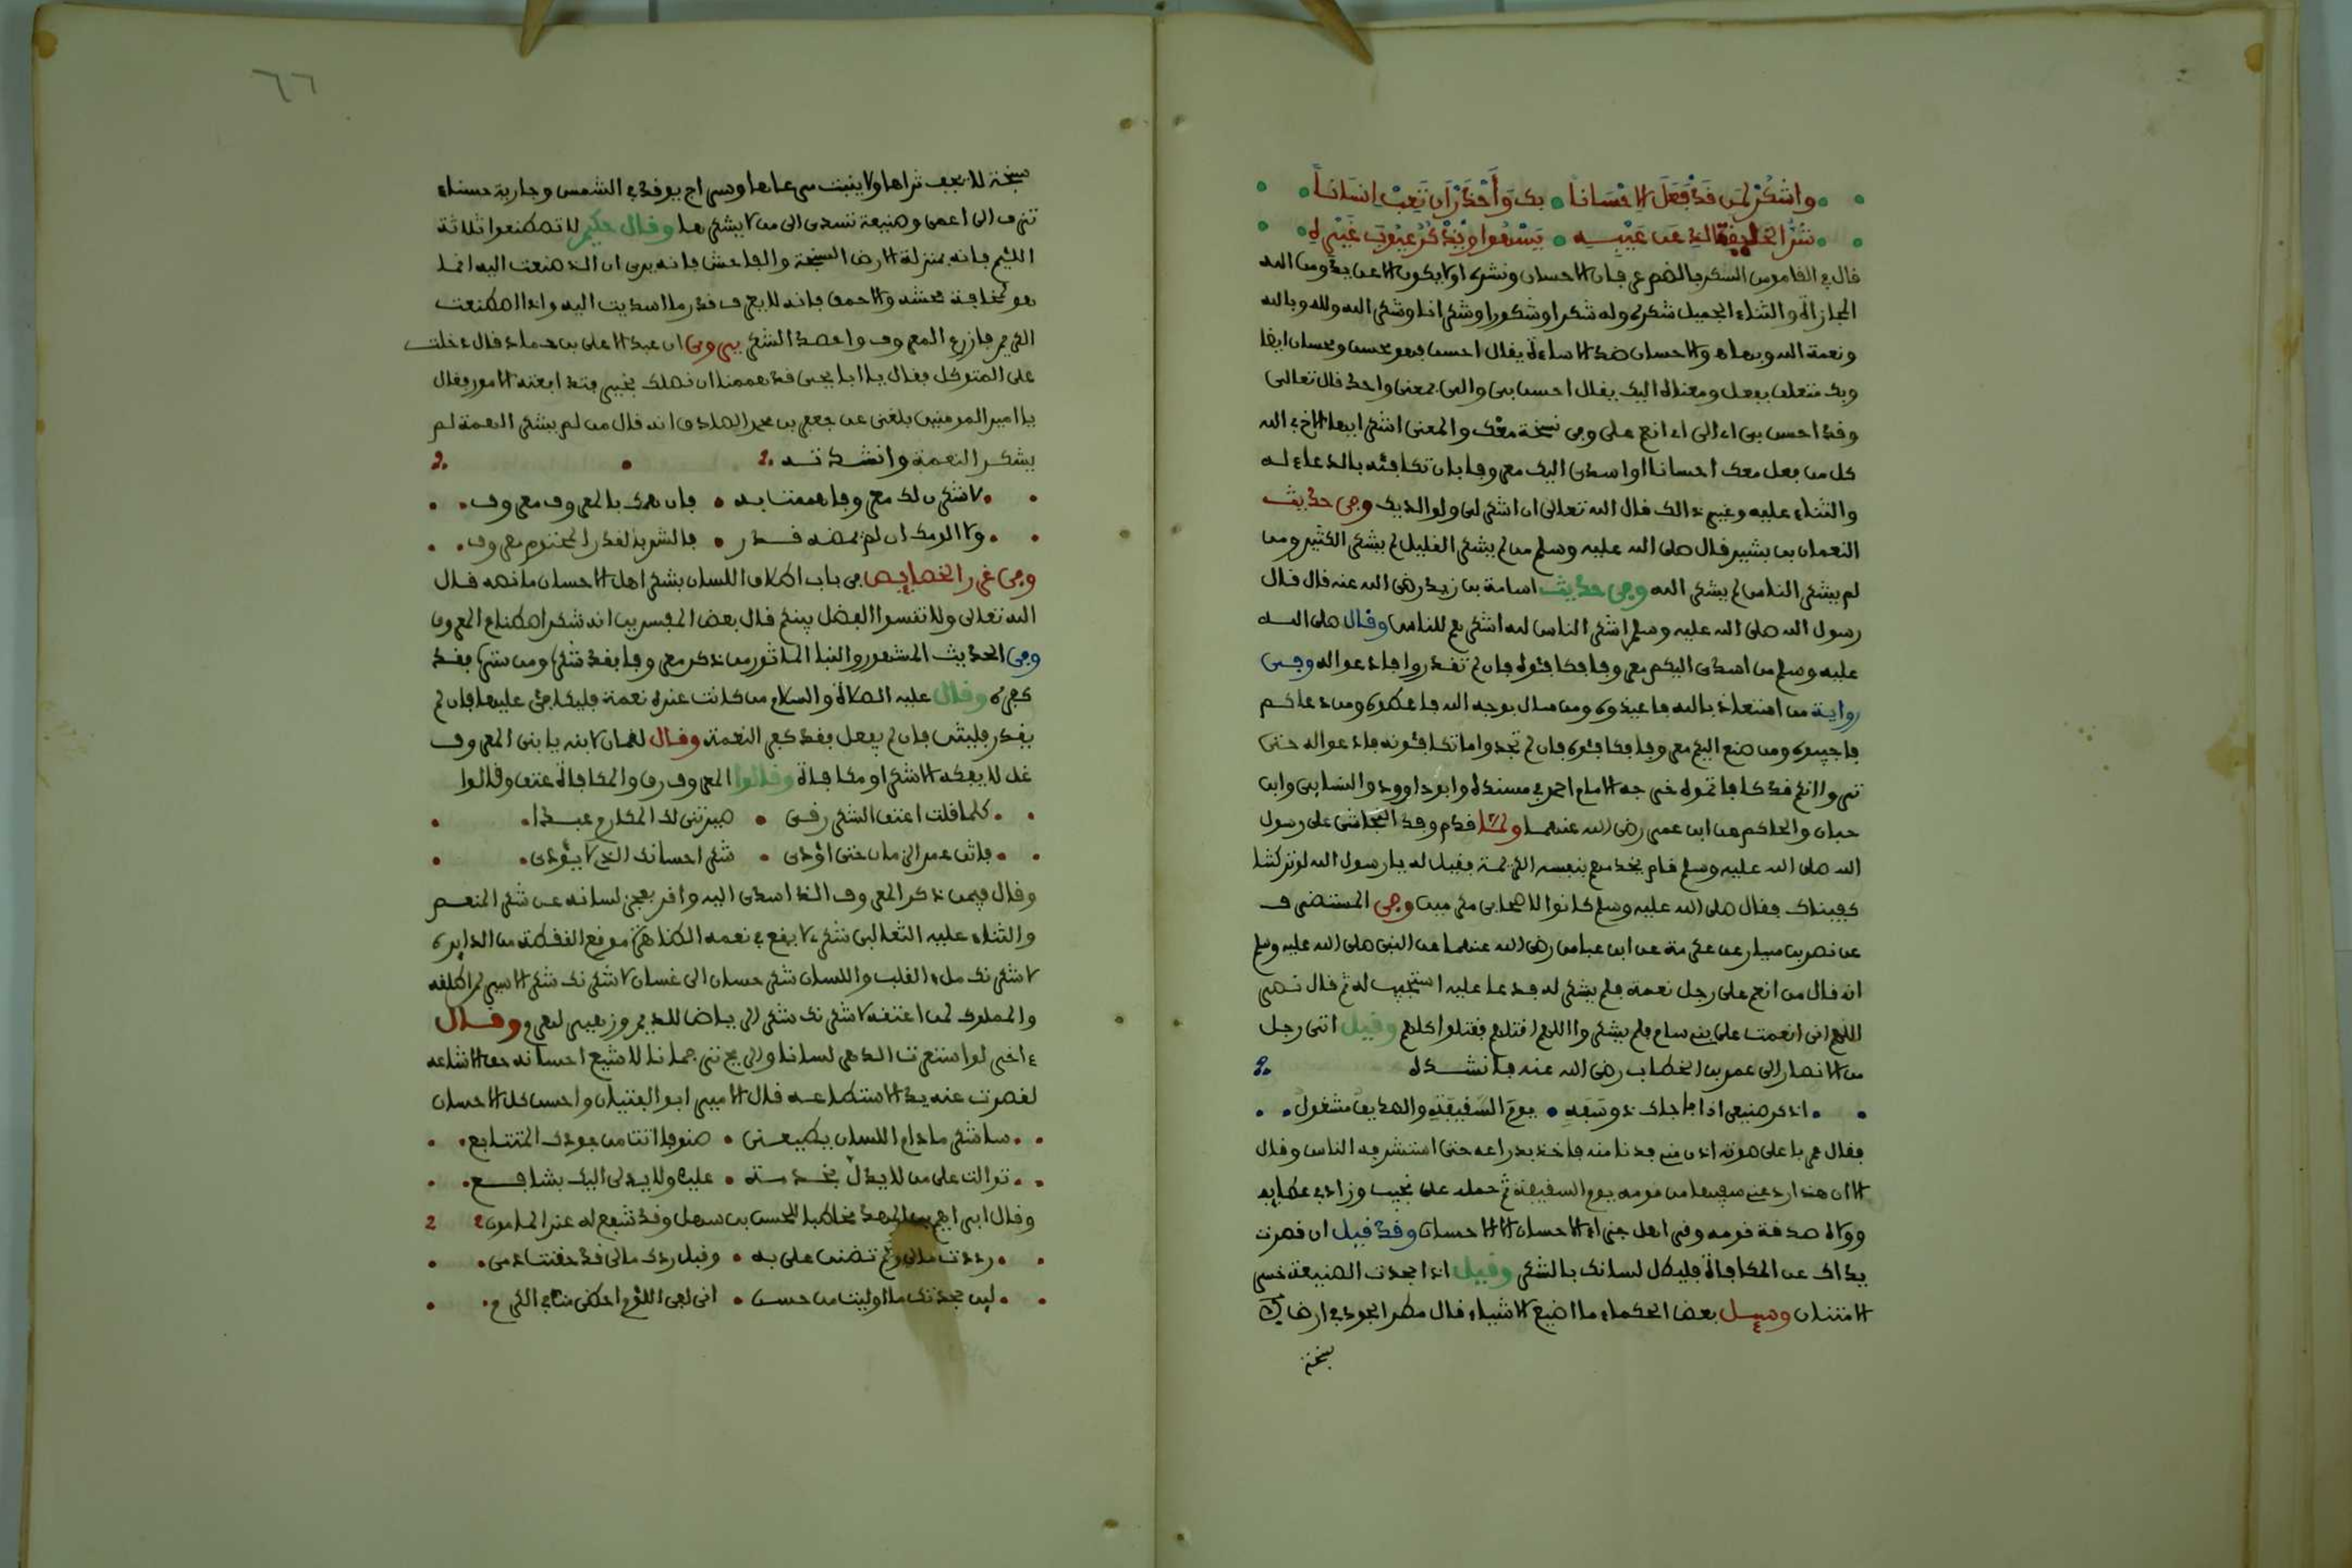 واشكر لمن قد فعل الاحسانا بك واحذر ان تعب انسانا
شر الخليقة الذي عن عيبه يسهوا ويذكر عيوب غيره
قال في القاموس الشكر بالضم عرفان الاحسان ونشره اولا يكون الا عن يد ومن الله
المجازاة والثناء الجميل شكره وله شكرا وشكورا وشكرانا وشكر الله ولله وبالله
ونعمة الله وبها والاحسان ضد الاساءة يقال احسن فهو محسن ومحسان ايضا
وبك متعلق بفعل ومعناه اليك يقال احسن بي والي بمعنى واحد قال تعالى
وقد احسن بي اي الي اي انعم علي وفي نسخة معك والمعنى اشكر ايها الاخ في الله
كل من فعل معك احسانا او اسدى اليك معروفا بان تكافئه بالدعاء له
والثناء عليه وغير ذالك قال الله تعالى ان اشكر لي ولوالديك وفي حديث
النعمان بن بشير قال صلى الله عليه وسلم من لم يشكر القليل لم يشكر الكثير ومن
لم يشكر الناس لم يشكر الله وفي حديث اسامة بن زيد رضي الله عنه قال قال
رسول الله صلى الله عليه وسلم اشكر الناس لله اشكرهم للناس وقال صلى الله
عليه وسلم من اسدى اليكم معروفا فكافئوه فان لم تقدروا فادعوا له وفي
رواية من استعاذ بالله فاعيذوه ومن سال بوجه الله فاعطوه ومن دعاكم
فاجيبوه ومن صنع اليكم معروفا فكافئوه فان لم تجدوا ما تكافئونه فادعوا له حتى
تروا انكم قد كافاتموه خرجه الامام احمد في مسنده وابو داوود والنسايي وابن
حبان والحاكم عن ابن عمر رضي الله عنهما ولما قدم وفد النجاشي على رسول
الله صلى الله عليه وسلم قام يخدمهم بنفسه الكريمة فقيل له يا رسول الله لو تركتنا
كفيناك فقال صلى الله عليه وسلم كانوا لاصحابي مكرمين وفي المستضرف
عن نصر بن سيار عن عكرمة عن ابن عباس رضي الله عنهما عن النبي صلى الله عليه وسلم
انه قال من انعم على رجل نعمة فلم يشكر له فدعا عليه استجيب له ثم قال نصر
اللهم اني انعمت على بني سام فلم يشكروا اللهم اقتلهم فقتلوا كلهم وقيل اتى رجل
من الانصار الى عمر بن الخطاب رضي الله عنه فانشده
اذكر صنيعي اذ فاجاك ذو سفه يوم السقيفة والصديق مشغول
فقال عمر باعلى صوته ادن مني فدنا منه فاخذ بذراعه حتى استشرفه الناس وقال
الا ان هذا رد عني سفيها من قومه يوم السقيفة ثم حمله على نجيب وزاد في عطايه
وولاه صدقة قومه وقرا هل جزاء الاحسان الا الاحسان وقد قيل ان قصرت
يداك عن المكافاة فليطل لسانك بالشكر وقيل اذا جحدت الصنيعة خسر
الامتنان وسيل بعض الحكماء ما اضيع الاشياء قال مطر الجود في ارض
سبخة
٦٦
سبخة لا يجف ثراها ولا ينبت مرعاها وسراج يوقد في الشمس وجارية حسناء
تزف الى اعمى وصنيعة تسدى الى من لا يشكرها وقال حكيم لا تصطنعوا ثلاثة
اللئيم فانه بمنزلة الارض السبخة والفاحش فانه يرى ان الذي صنعت اليه انما
هو لمخافة فحشه والاحمق فانه لا يعرف قدر ما اسديت اليه واذا اصطنعت
الكريم فازرع المعروف واحصد الشكر يروى ان عبد الاعلى بن حماد قال دخلت
على المتوكل فقال يا ابا يحيى قد هممنا ان نصلك بخير فتدافعته الامور فقال
يا امير المومنين بلغني عن جعفر بن محمد الصادق انه قال من لم يشكر الهمة لم
يشكر النعمة وانشدته
لاشكرن لك معروفا هممت به فان همك بالمعروف معروف
ولا الومك ان لم يمضه قدر فالشيء بالقدر المحتوم معروف
وفي غرر الخصايص في باب اطلاق اللسان بشكر اهل الاحسان ما نصه قال
الله تعالى ولا تنسوا الفضل بينكم قال بعض المفسرين انه شكر اصطناع المعروف
وفي الحديث المشهور والنبا الماثور من ذكر معروفا فقد شكره ومن ستره فقد
كفره وقال عليه الصلاة والسلام من كانت عنده نعمة فليكافئ عليها فان لم
يقدر فليثن فان لم يفعل فقد كفر النعمة وقال لقمان لابنه يا بني المعروف
غل لا يفكه الا شكر او مكافاة وقالوا المعروف رق والمكافاة عتق وقالوا
كلما قلت اعتق الشكر رقي صيرتني لك المكارم عبدا
فاتق عمر الزمان حتى اؤدي شكر احسانك الذي لا يؤدى
وقال فيمن ذكر المعروف الذي اسدى اليه واقر بعجز لسانه عن شكر المنعم
والثناء عليه الثعالبي شكره لا يقع في نعمه الظاهرة موقع النقطة من الدايرة
لاشكرنك ملء القلب واللسان شكر حسان الى غسان لاشكرنك شكر الاسير لمن اطلقه
والمملوك لمن اعتقه لاشكرنك شكر الرياض للديم وزهير لهرم وقال
ءاخر لو استعرت الدهر لسانا والريح ترجمانا لاشيع احسانه حق الاشاعه
لقصرت عنه يد الاستطاعه قال الامير ابو الفتيان واحسن كل الاحسان
ساشكر ما دام اللسان يطيعني صنوفا اتت من جودك المتتابع
توالت على من لا يدل بخدمة عليك ولا يدلي اليك بشافع
وقال ابراهيم بن المهدي مخاطبا للحسن بن سهل وقد شفع له عند المامون
رددت مالي ولم تضنن علي به وقبل ردك مالي قد حقنت دمي
لين جحدتك ما اوليت من حسن اني لفي اللؤم احظى منك في الكرم